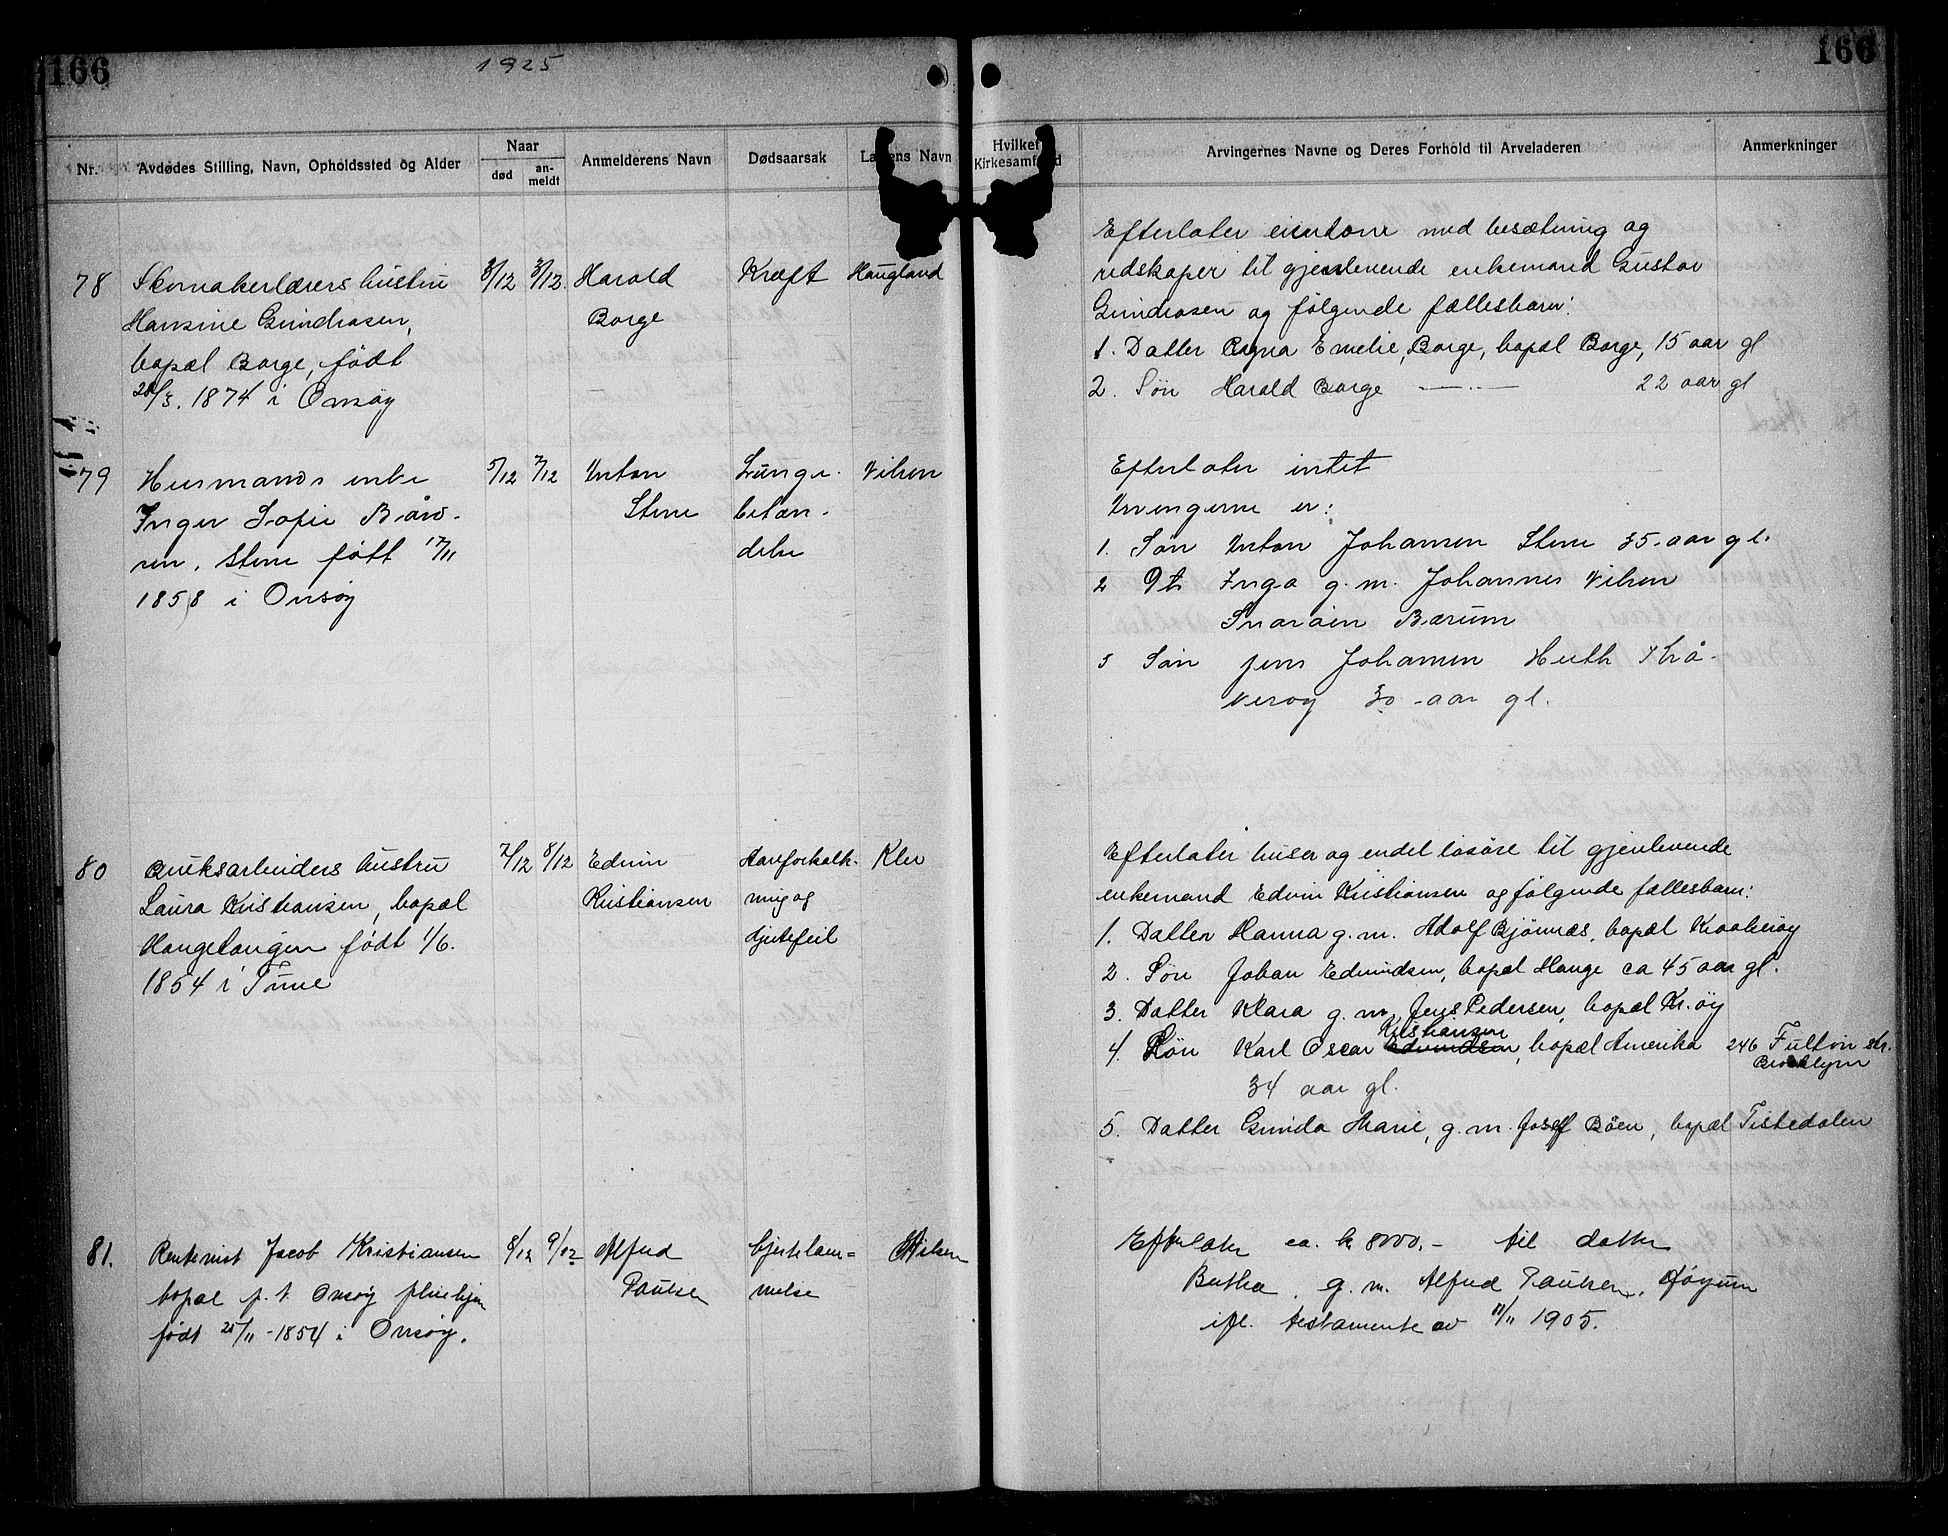 166
1925
166
Nr.
Avdødes Stilling, Navn, Opholdssted og Alder
Naar
død
an-
meldt
Anmelderens Navn
Dødsaarsak
Lægens Navn
Hvilket
Kirkesamfund
Arvingernes Navne og Deres Forhold til Arveladeren
Anmerkninger
78
Skomakerlærers hustru
Hansine Gundrosen,
bopæl Borge, født
28/3. 1874 i Onsøy
3/12
3/12.
Harald
Borge
Kræft
Haugland
Efterlater eiendom med besætning og
redskaper til gjenlevende enkemand Gustav
Gundrosen og følgende fællesbarn:
1. Datter Ragna Emelie, Borge, bopæl Borge, 15 aar gl
2. Søn Harald Borge —..— 22 aar gl
79
Husmands enke
Inger Sofie Bård-
sen, Stene født 17/11
1858 i Onsøy
5/12
7/12
Anton
Stene
Lunge-
betæn-
delse
Nilsen
Efterlater intet
Arvingerne er:
1. Søn Anton Johansen Stene 35 aar gl.
2 Dtr Inga g. m. Johannes Nilsen
Snarøen Bærum
3 Søn Jens Johansen Huth Krå-
kerøy 30 aar gl.
80
Bruksarbeiders hustru
Laura Kristiansen, bopæl
Haugetangen født 1/6.
1854 i Tune
7/12
8/12
Edvin
Kristiansen
Aareforkalk-
ning og
hjertefeil
Kler
Efterlater huser og endel løsøre til gjenlevende
enkemand Edvin Kristiansen og følgende fællesbarn:
1. Datter Hanna g. m. Adolf Bjørnnæs, bopæl Kraakerøy
2. Søn Johan Edvindsen, bopæl Hauge ca 45 aar gl.
3. Datter Klara g. m. Jens Pedersen, bopæl Kr.øy
Kristiansen
4. Søn Karl Oscar Edvindsen, bopæl Amerika 246 Fulton str.
Brooklyn
34 aar gl.
5. Datter Gunda Marie, g. m. Josef Bøen, bopæl Tistedalen
81.
Rentenist Jacob Kristiansen
bopæl p. t. Onsøy pleiehjem
født 25/11 - 1854 i Onsøy.
8/12
9/12
Alfred
Paulsen
hjertelam-
melse
Nilsen
Efterlater ca. kr 8000,- til datter
Bertha, g. m. Alfred Paulsen,
ifl. testamente av 11/11 1905.